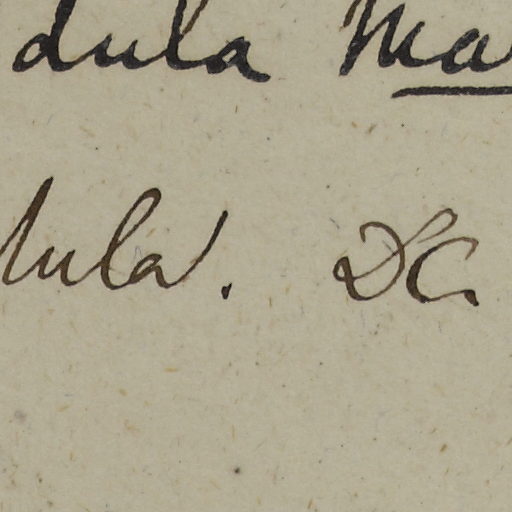 dula Ma
dula. DC.